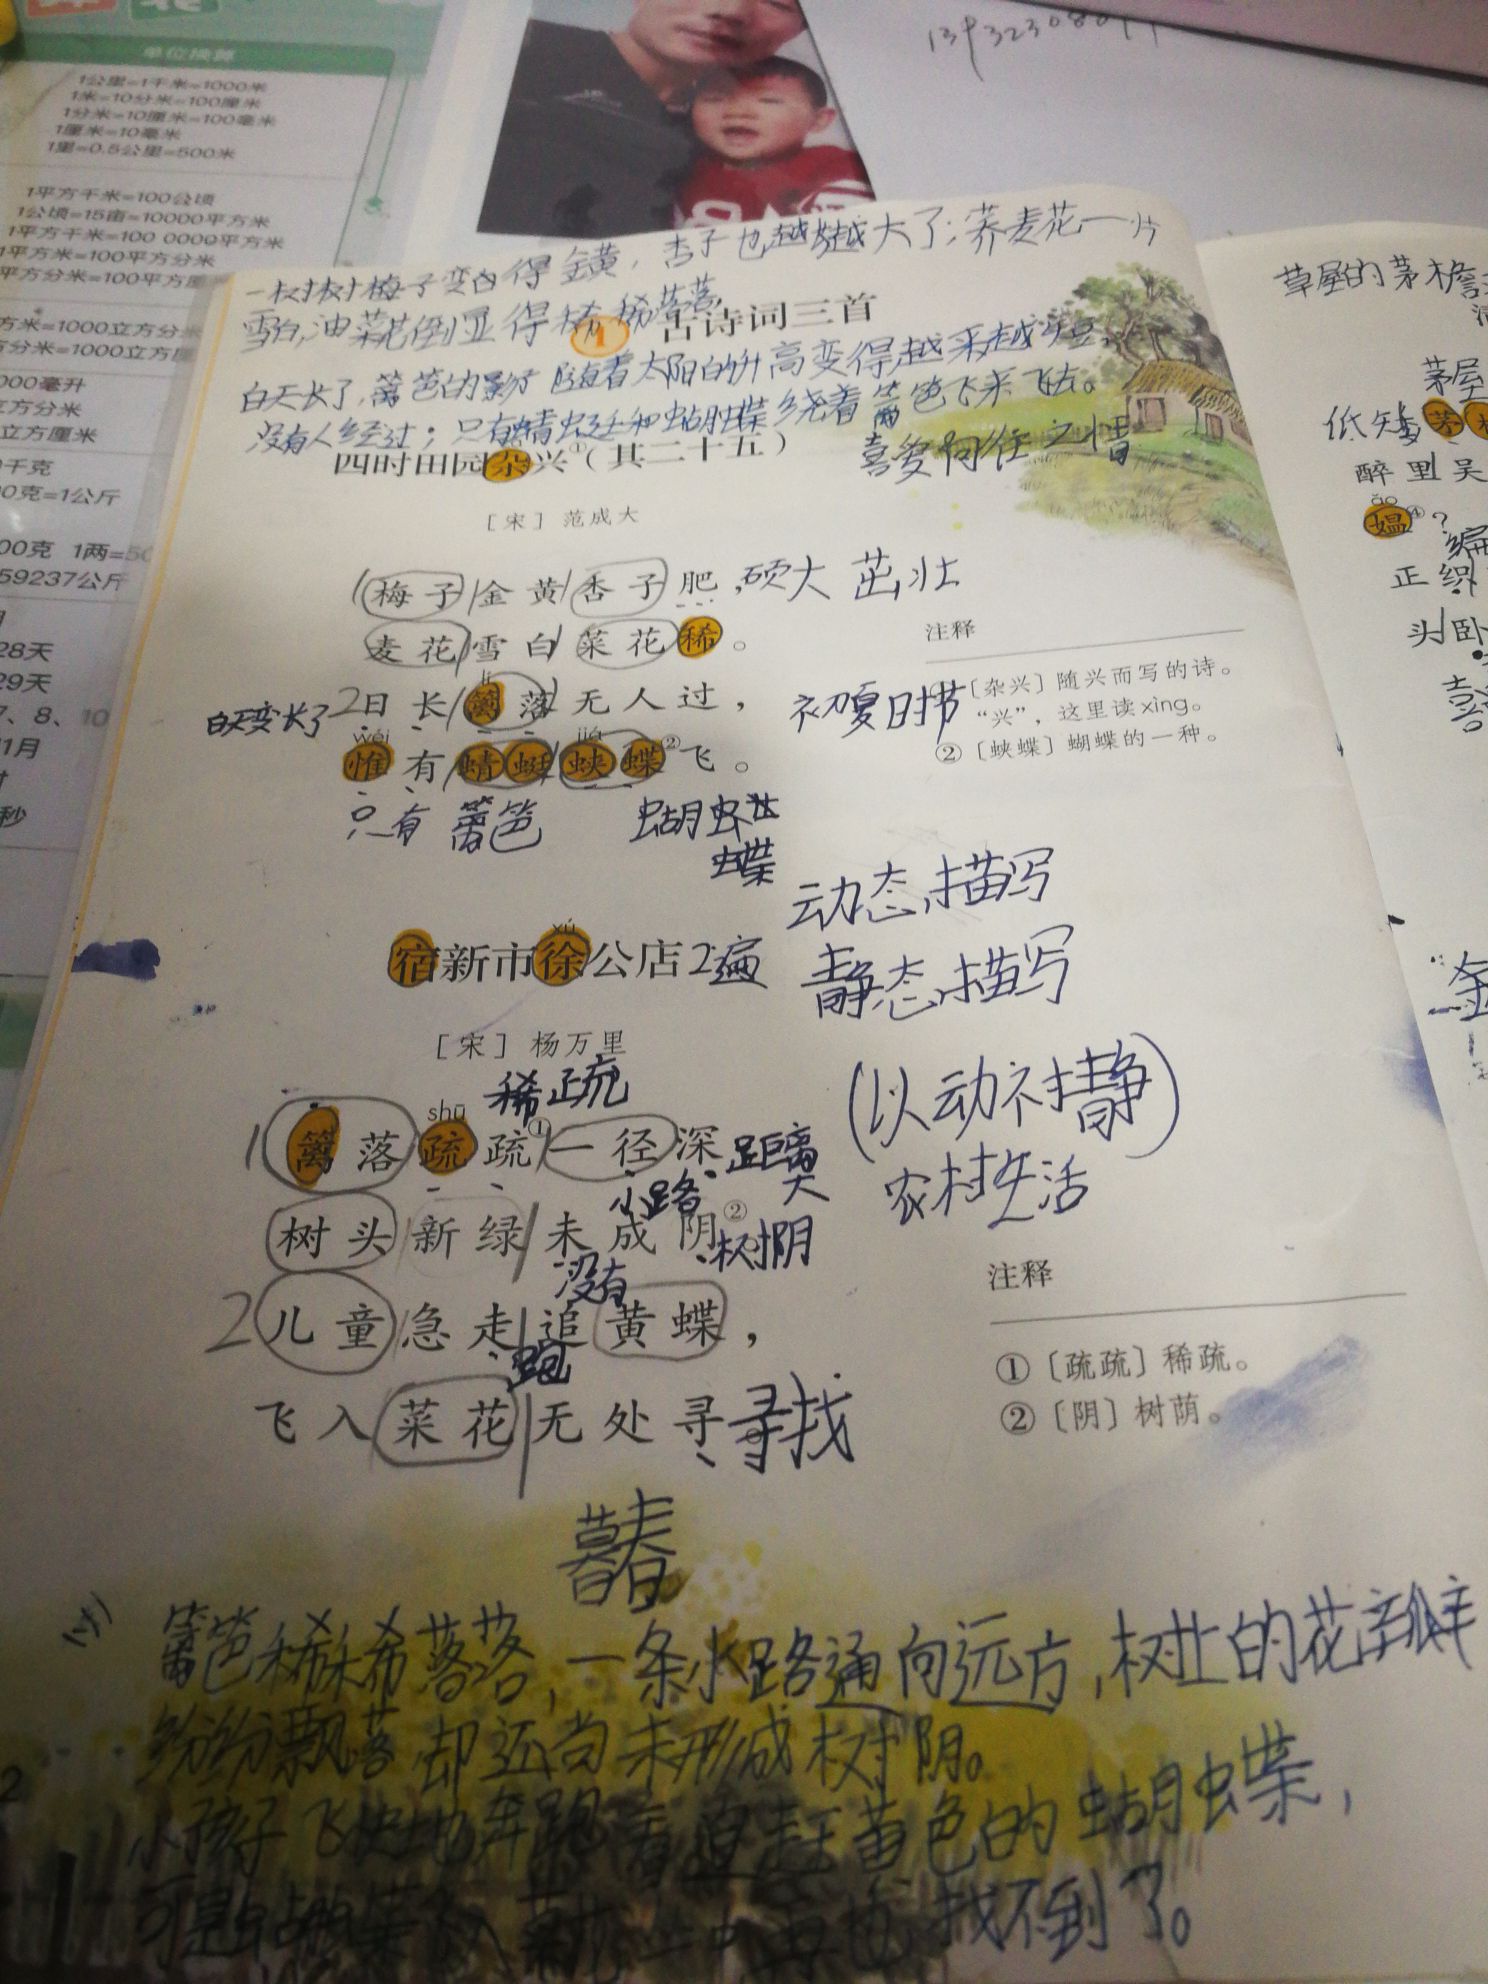 单位换算
1公里=1千米=1000米
1米=10分米=100厘米
1分米=10厘米=100毫米
1厘米=10毫米
1里=0.5公里=500米
1平方千米=100公顷
1公顷=15亩=10000平方米
1平方千米=100 0000平方米
1平方米=100平方分米
平方分米=100平方厘
方米=1000立方分米
方分米=1000立方厘
000毫升
立方分米
立方厘米
0千克
00克=1公斤
00克 1两=50
59237公斤
28天
29天
7、8、10
1月
秒
一树树梅子变得金黄，杏子也越越大了；荞麦花一片
雪白，油菜花倒显得稀稀落落
1 古诗词三首
白天长了，篱笆的影子随着太阳的升高变得越来越短，
没有人经过；只有蜻蜓和蝴蝶绕着篱笆飞来飞去。
四时田园杂兴①（其二十五）
喜爱向往之情
［宋］范成大
1梅子金黄杏子肥，硕大 茁壮
麦花雪白菜花稀。
lí
白天变长了 2日长篱落无人过，初夏时节
wéi jiá
惟有蜻蜓蛱蝶②飞。
只有 篱笆 蝴蝶
注释
①〔杂兴〕随兴而写的诗。
“兴”，这里读xìng。
②〔蛱蝶〕蝴蝶的一种。
动态描写
xú
宿新市徐公店2遍
静态描写
［宋］杨万里
稀疏
(以动衬静)
农村生活
shū
1篱落疏疏①一径深 距离大
小路
树头新绿未成阴② 树阴
没有
2儿童急走追黄蝶，
跑
飞入菜花无处寻 寻找
注释
①〔疏疏〕稀疏。
②〔阴〕树荫。
暮春
篱笆稀稀落落，一条小路通向远方，树上的花瓣
纷纷飘落却还尚未形成树阴。
小孩子飞快地奔跑着追赶黄色的蝴蝶，
可是蝴蝶飞入菜花
找不到了。
2
草屋的茅檐
茅屋
低矮 茅
醉里吴
ǎo
媪④？
编
正织
头卧
喜